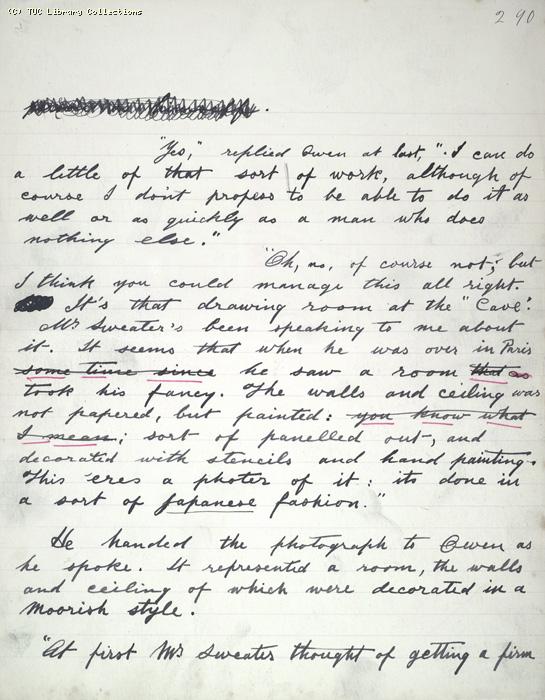 (C) TUC Library Collections
290
"Yes," replied Owen at last, "I can do
a little of that sort of work, although of
course I don't profess to be able to do it as
well or as quickly as a man who does
nothing else."
"Oh, no, of course not; but
I think you could manage this all right.
It's that drawing room at the "Cave".
Mr Sweater's been speaking to me about
it. It seems that when he was over in Paris
some time since he saw a room that
took his fancy. The walls and ceiling was
not papered, but painted: you know what
I mean; sort of panelled out, and
decorated with stencils and hand painting.
This 'eres a photer of it: its done in
a sort of Japanese fashion."
He handed the photograph to Owen as
he spoke. It represented a room, the walls
and ceiling of which were decorated in a
Moorish style.
"At first Mr Sweater thought of getting a firm